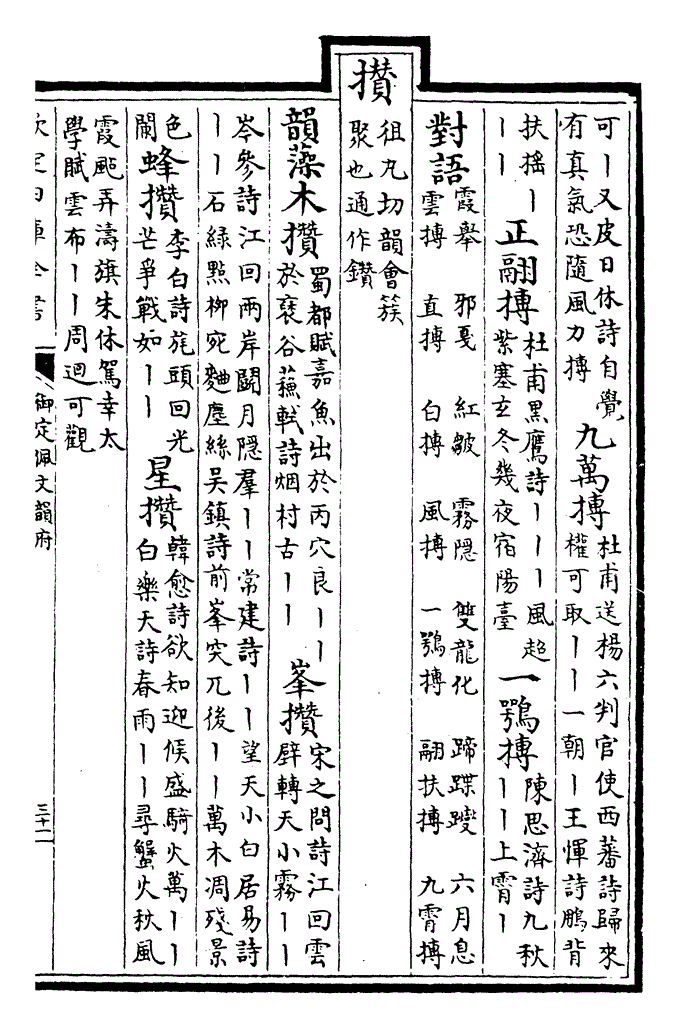 可丨又皮日休詩自覺
有真氣恐隨風力摶
九萬摶
杜甫送楊六判官使西蕃詩歸來
權可取丨丨一朝丨王惲詩鵬背
扶搖丨
丨丨
正翮摶
杜甫黑鷹詩丨丨丨風超
紫塞玄冬幾夜宿陽臺
一鶚摶
陳思濟詩九秋
丨丨上霄丨
對語
霞舉 邪戛 紅皴 霧隱 雙龍化 蹄蹀躞 六月息
雲摶 直摶 白摶 風摶 一鶚摶 翮扶摶 九霄摶
攢
徂丸切韻會簇
聚也通作鑽
韻藻
木攢
蜀都賦嘉魚出於丙穴良丨丨
於裒谷蘓軾詩烟村古丨丨
峯攢
宋之問詩江回雲
壁轉天小霧丨丨
岑參詩江回兩岸鬭月隱羣丨丨常建詩丨丨望天小白居易詩
丨丨石綠點柳宛麯塵絲吳鎮詩前峯突兀後丨丨萬木凋殘景
色
闌
蜂攢
李白詩旄頭回光
芒爭戰如丨丨
星攢
韓愈詩欲知迎候盛騎火萬丨丨
白樂天詩春雨丨丨尋蟹火秋風
霞颭弄濤旗朱休駕幸太
學賦雲布丨丨周迴可觀
欽定四庫全書
御定佩文韻府
三十二